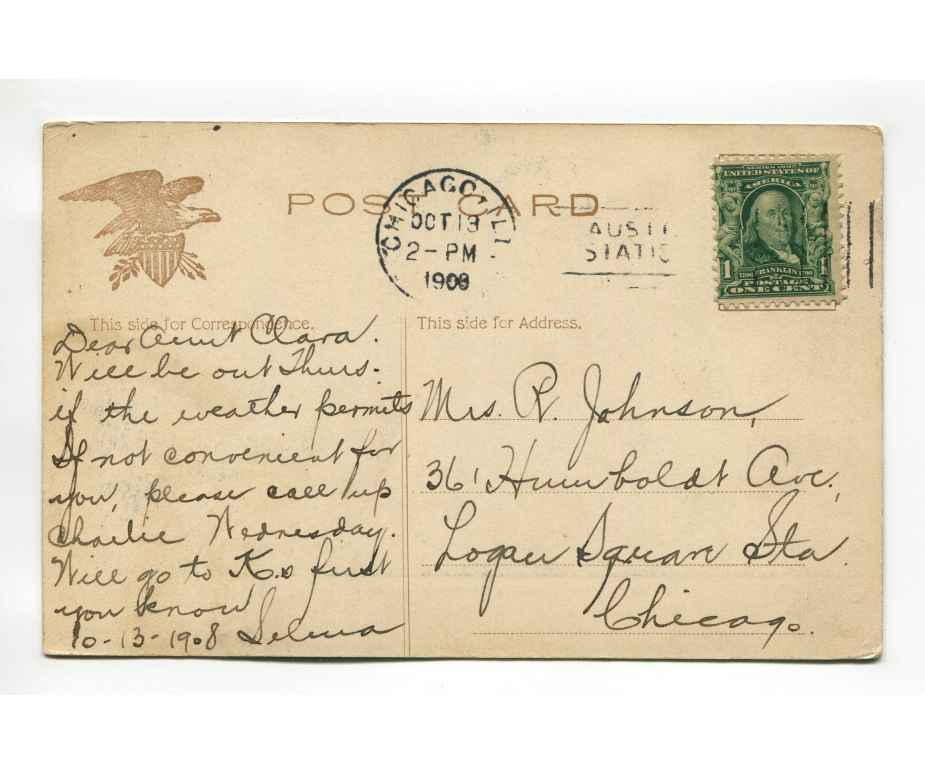 POST CARD
CHICAGO, ILL
OCT 13
2-PM
1908
AUSTI
STATIO
UNITED STATES OF
AMERICA
1 FRANKLIN 1
POSTAGE
ONE CENT
This side for Correspondence.
Dear Aunt Clara.
Will be out Thurs.
if the weather permits
If not convenient for
you, please call up
Charlie Wednesday.
Will go to K.s first
you know
10-13-1908 Selma
This side for Address.
Mrs. R. Johnson,
361 Humboldt Ave.,
Logan Square Sta
Chicago.